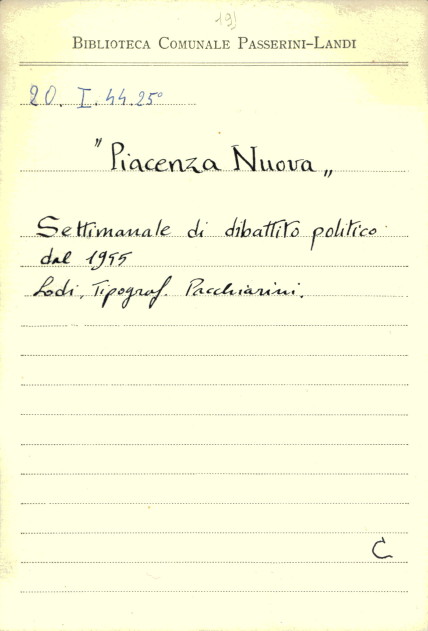 191
BIBLIOTECA COMUNALE PASSERINI-LANDI
20. I. 44. 25°
"Piacenza Nuova„
Settimanale di dibattito politico
dal 1955
Lodi, Tipograf. Pacchiarini.
C